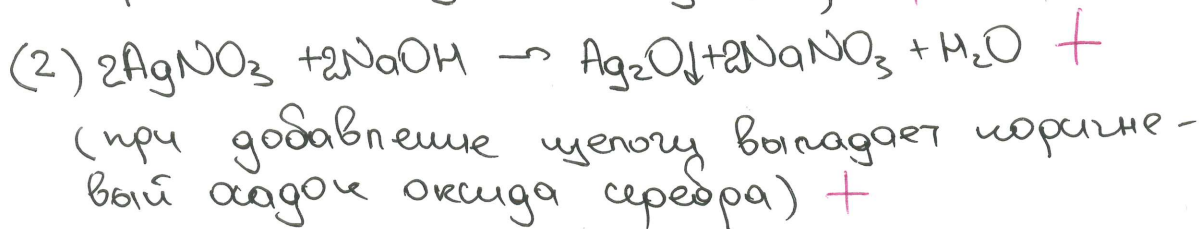 (2) 2AgNO₃ +2NaOH → Ag₂O↓+2NaNO₃ + H₂O +
(при добавление щелочи выпадает коричне-
вый осадок оксида серебра) +